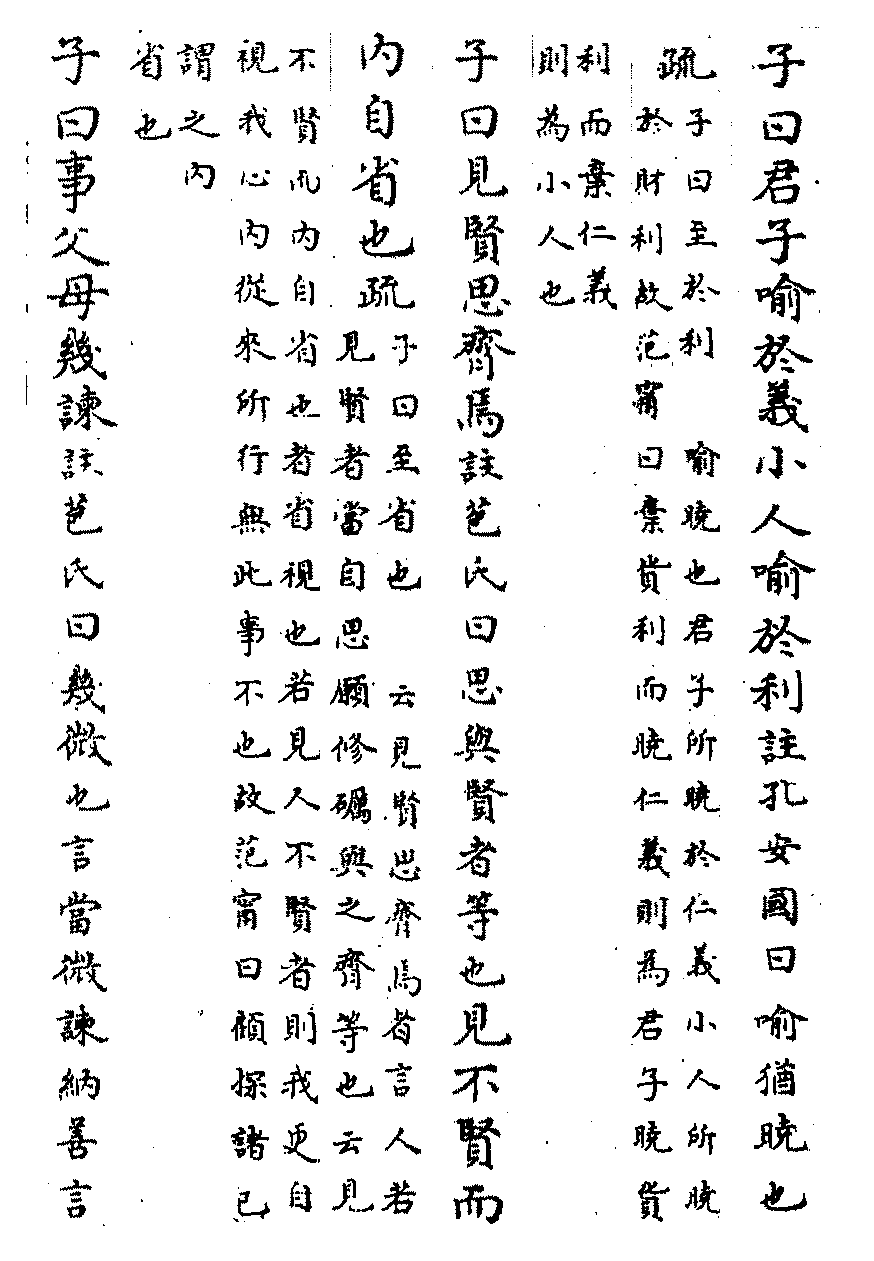 子曰君子喻於義小人喻於利註孔安國曰喻猶曉也
疏
子曰至於利 喻曉也君子所曉於仁義小人所曉
於財利故范甯曰棄貨利而曉仁義則為君子曉貨
利而棄仁義
則為小人也
子曰見賢思齊焉註苞氏曰思與賢者等也見不賢而
內自省也疏
子曰至省也 云見賢思齊焉者言人若
見賢者當自思願修礪與之齊等也云見
不賢而內自省也者省視也若見人不賢者則我更自
視我心內從來所行無此事不也故范甯曰顧探諸已
謂之內
省也
子曰事父母幾諫註苞氏曰幾微也言當微諫納善言